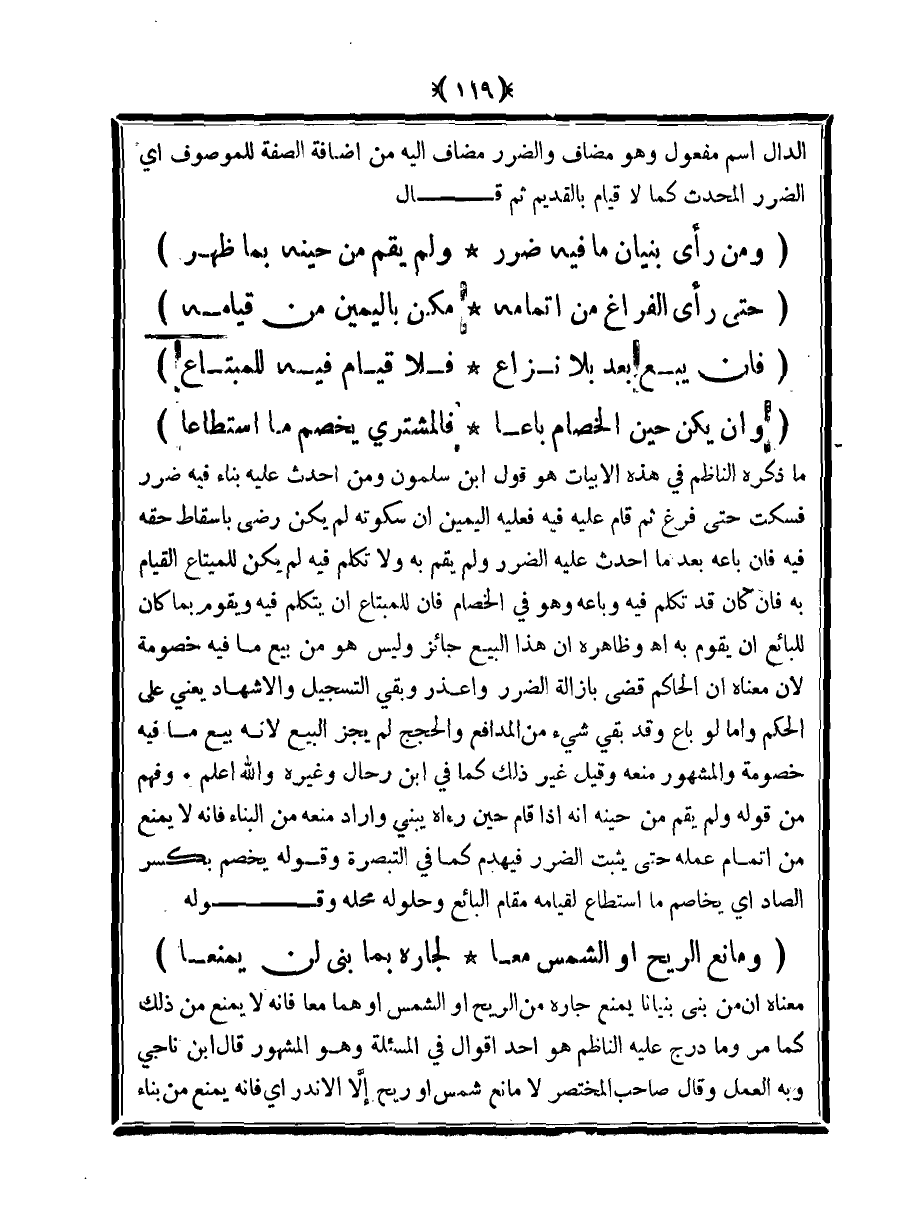 (١١٩)
الدال اسم مفعول وهو مضاف والضرر مضاف اليه من اضافة الصفة للموصوف اي
الضرر المحدث كما لا قيام بالقديم ثم قـــــــال
( ومن رأى بنيان ما فيه ضرر * ولم يقم من حينه بما ظهـر )
( حتى رأى الفراغ من اتمامه * مكن باليمين من قيامـه )
( فان يبـع بعد بلا نـزاع * فـلا قيـام فيـه للمبتـاع )
( وان يكن حين الخصام باعـا * فالمشتري يخصم ما استطاعا )
ما ذكره الناظم في هذه الابيات هو قول ابن سلمون ومن احدث عليه بناء فيه ضرر
فسكت حتى فرغ ثم قام عليه فيه فعليه اليمين ان سكوته لم يكن رضى باسقاط حقه
فيه فان باعه بعد ما احدث عليه الضرر ولم يقم به ولا تكلم فيه لم يكن للمبتاع القيام
به فان كان قد تكلم فيه وباعه وهو في الخصام فان للمبتاع ان يتكلم فيه ويقوم بما كان
للبائع ان يقوم به اه وظاهره ان هذا البيع جائز وليس هو من بيع مـا فيه خصومة
لان معناه ان الحاكم قضى بازالة الضرر واعـذر وبقي التسجيل والاشهـاد يعني على
الحكم واما لو باع وقد بقي شيء من المدافع والحجج لم يجز البيع لانـه بيع مـا فيه
خصومة والمشهور منعه وقيل غير ذلك كما في ابن رحال وغيره والله اعلم • وفهم
من قوله ولم يقم من حينه انه اذا قام حين رءاه يبني واراد منعه من البناء فانه لا يمنع
من اتمـام عمله حتى يثبت الضرر فيهدم كمـا في التبصرة وقـوله يخصم بكسر
الصاد اي يخاصم ما استطاع لقيامه مقام البائع وحلوله محله وقـــــــوله
( ومانع الريح او الشمس معـا * لجاره بما بنى لن يمنعـا )
معناه ان من بنى بنيانا يمنع جاره من الريح او الشمس او هما معا فانه لا يمنع من ذلك
كما مر وما درج عليه الناظم هو احد اقوال في المسئلة وهـو المشهور قال ابن ناجي
وبه العمل وقال صاحب المختصر لا مانع شمس او ريح إلَّا الاندر اي فانه يمنع من بناء